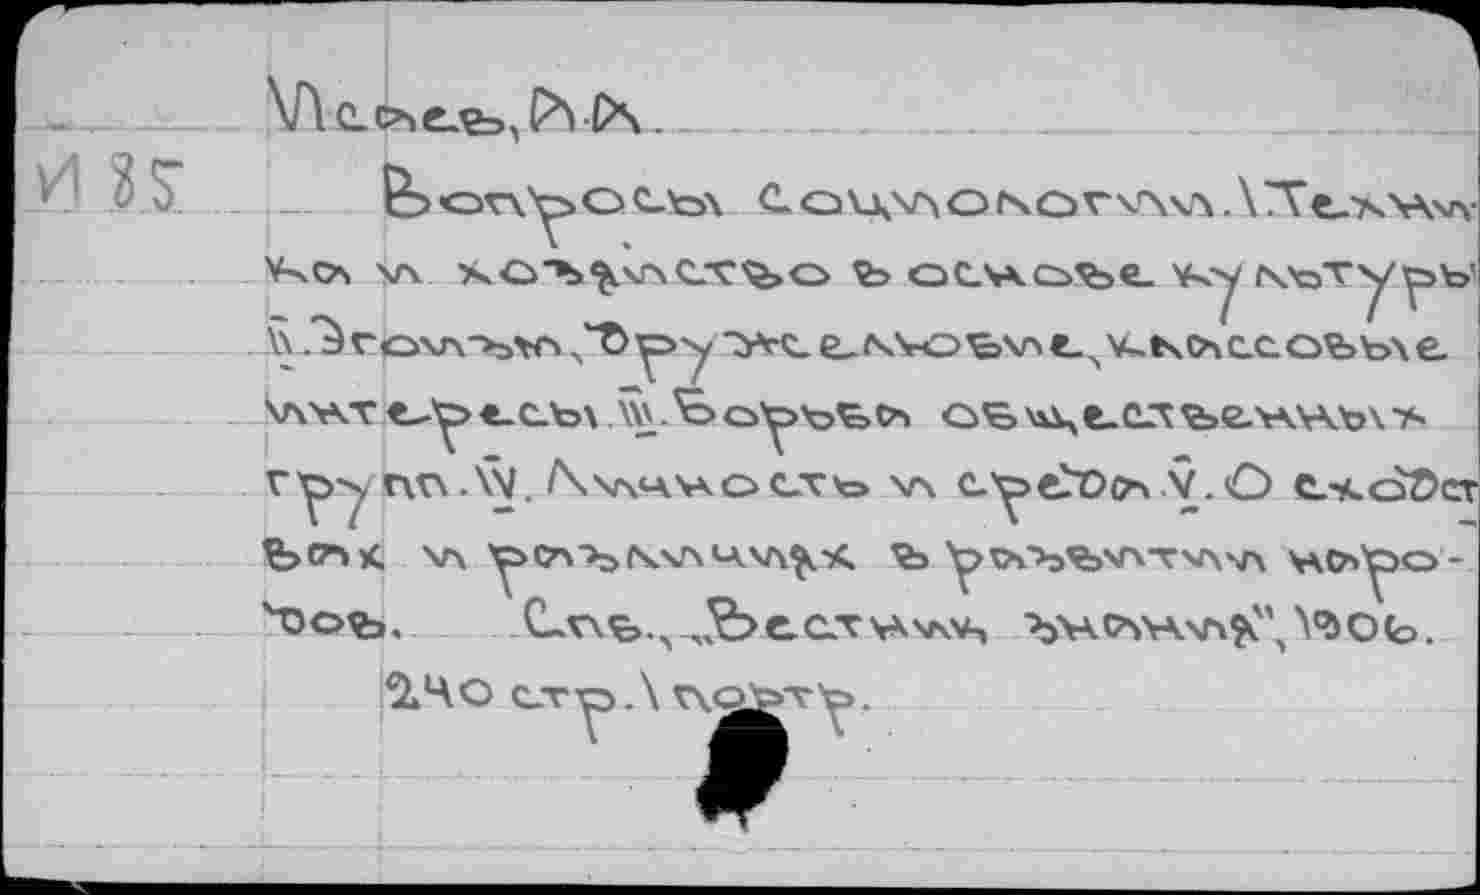 Исаев, А.А.
И 85 Вопросы социологии. I. Техни-
ка и хозяйство в основе культуры
II. Эгоизм, дружелюбие, классовые
интересы III. Борьба общественных
групп. IV. Личность и среда V. О сходст
вах и различиях в развитии наро-
дов. Спб., „Вестник знания", 1906.
240 стр. 1 портр.